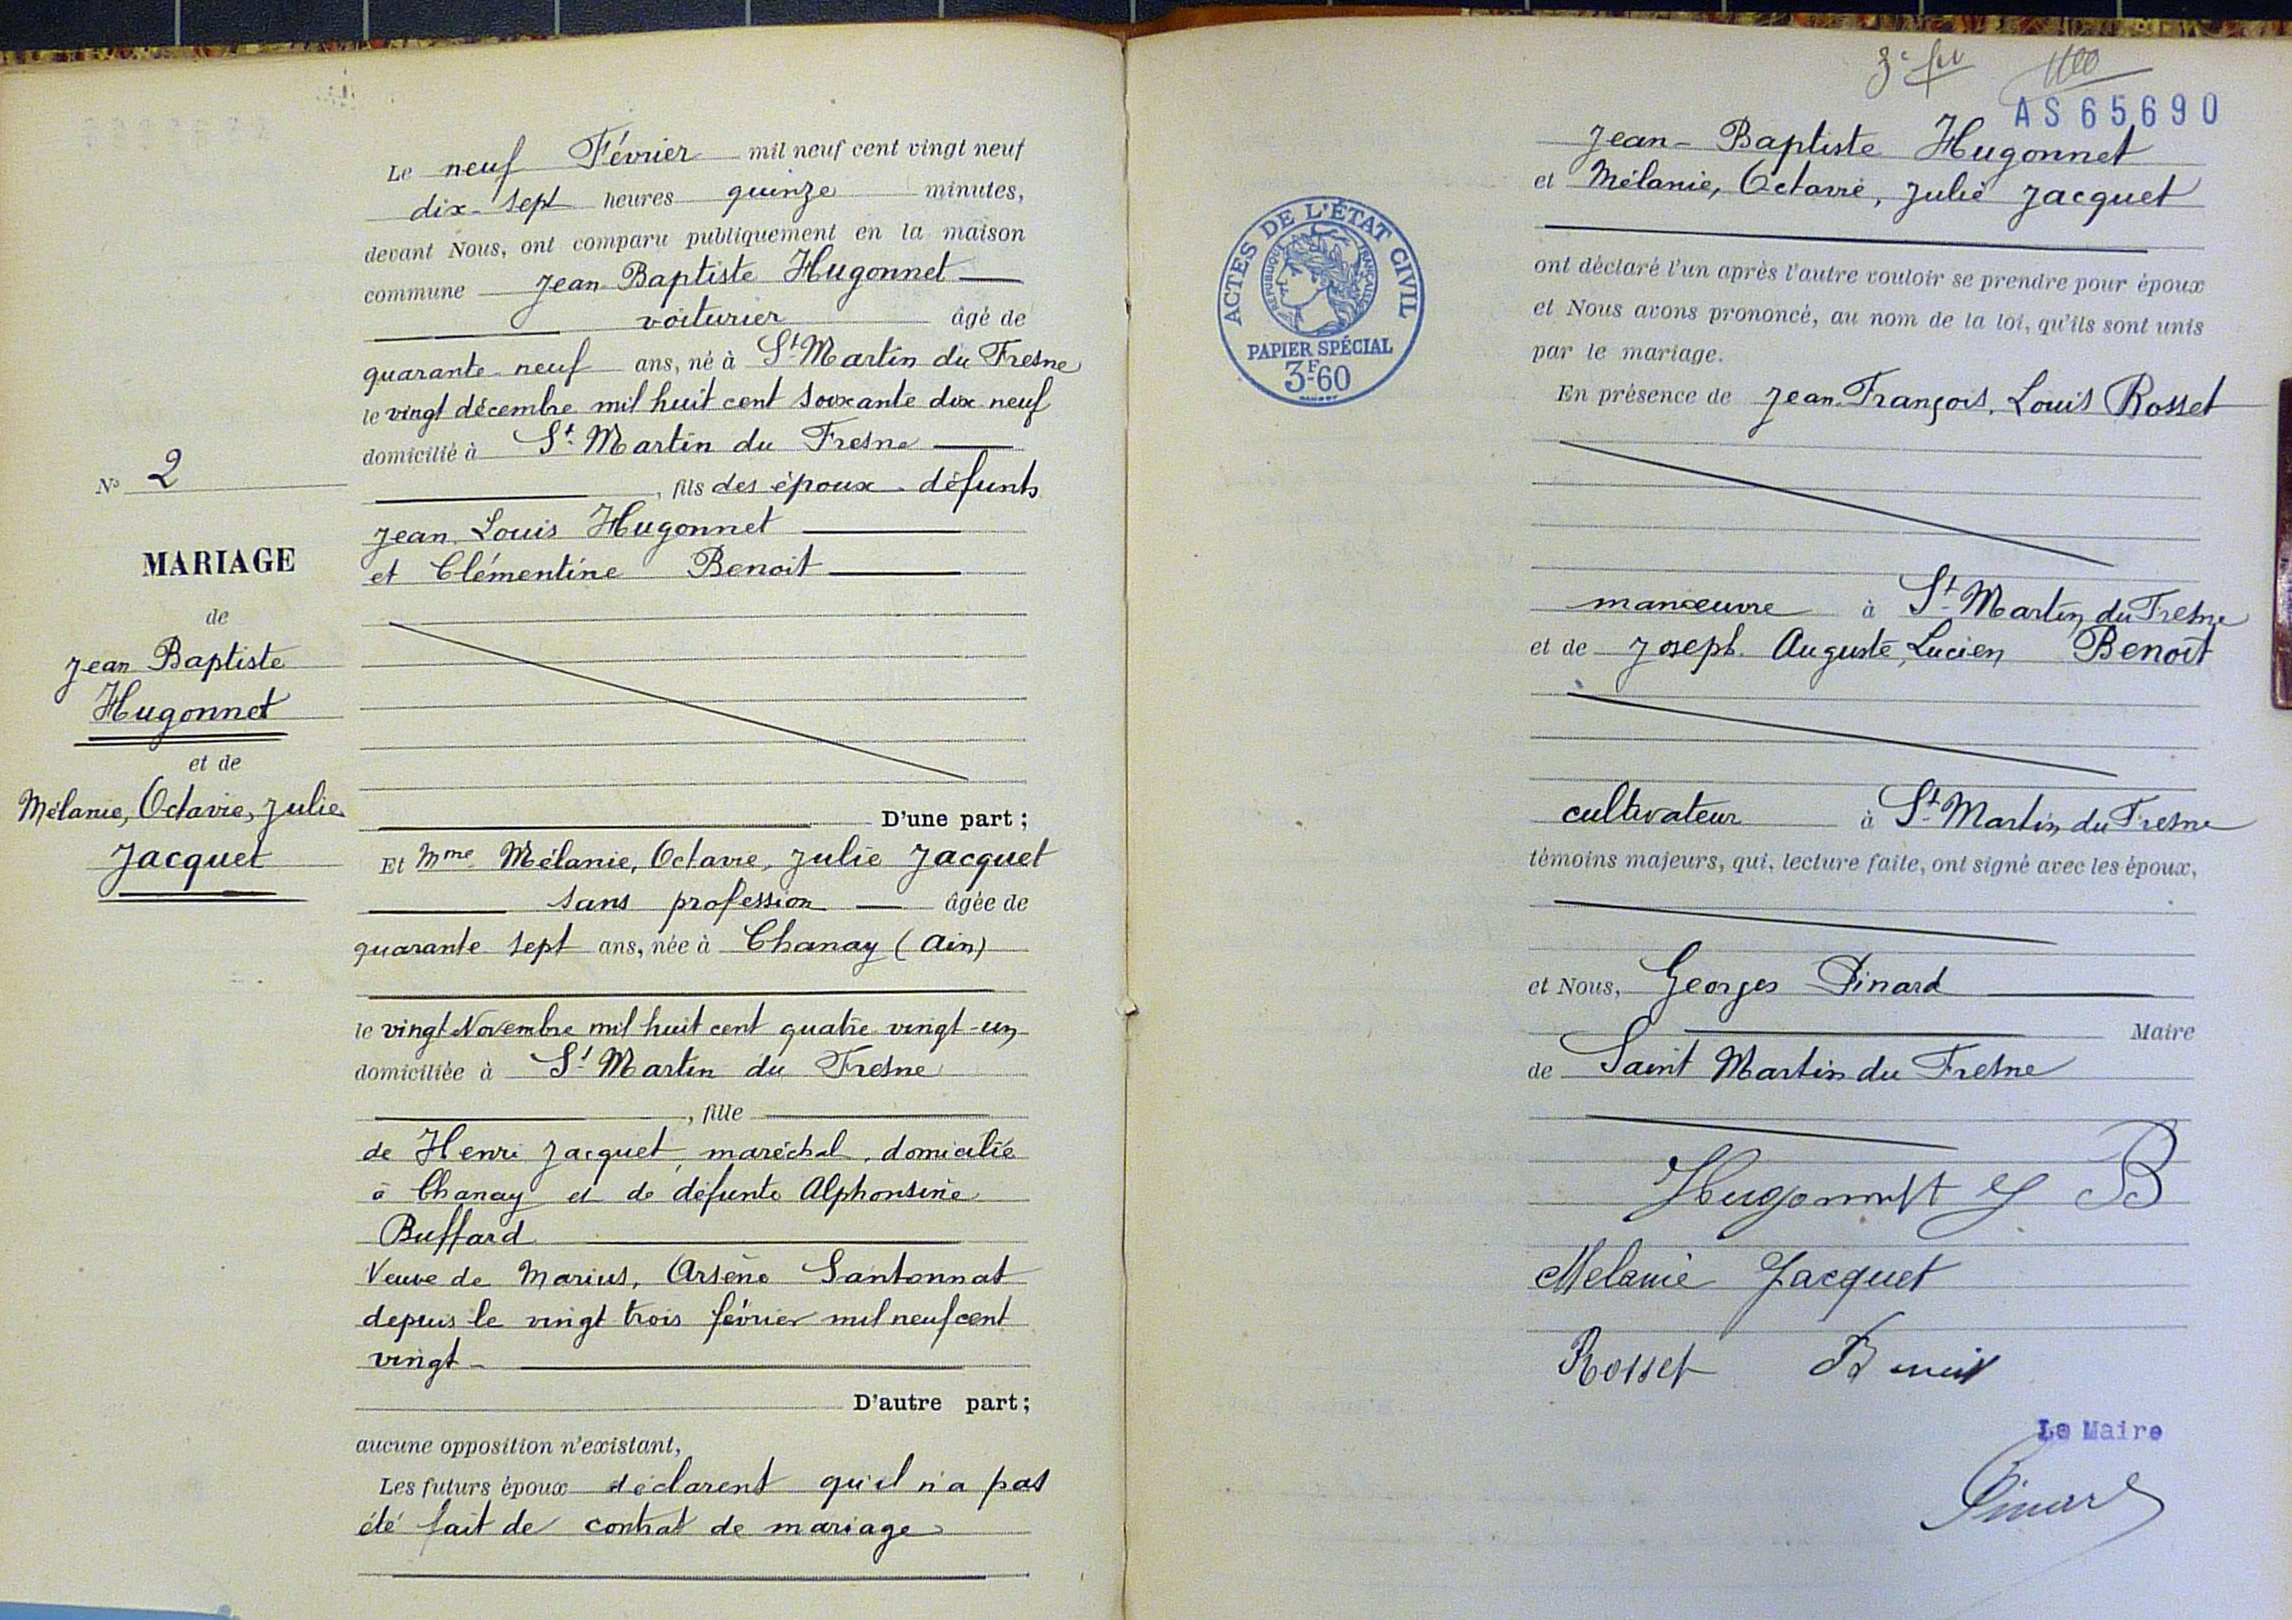 N° 2
MARIAGE
de
Jean Baptiste
Hugonnet
et de
Mélanie, Octavie, Julie
Jacquet
Le neuf Février mil neuf cent vingt neuf
dix-sept heures quinze minutes,
devant Nous, ont comparu publiquement en la maison
commune Jean-Baptiste Hugonnet
voiturier âgé de
quarante-neuf ans, né à St Martin du Fresne
le vingt décembre mil huit cent soixante dix neuf
domicilié à St Martin du Fresne
, fils des époux défunts
Jean Louis Hugonnet
et Clémentine Benoit
D'une part ;
Et Mme Mélanie, Octavie, Julie Jacquet
sans profession âgée de
quarante sept ans, née à Chanay (Ain)
le vingt Novembre mil huit cent quatre vingt-un
domiciliée à St Martin du Fresne
, fille
de Henri Jacquet, maréchal, domicilié
à Chanay et de défunte Alphonsine
Buffard
Veuve de Marius, Arsène Santonnat
depuis le vingt trois février mil neuf cent
vingt-
D'autre part ;
aucune opposition n'existant,
Les futurs époux déclarent qu'il n'a pas
été fait de contrat de mariage
AS 65690
Jean-Baptiste Hugonnet
et Mélanie, Octavie, Julie Jacquet
ACTES DE L'ÉTAT CIVIL
RÉPUBLIQUE FRANÇAISE
PAPIER SPÉCIAL
3F-60
ont déclaré l'un après l'autre vouloir se prendre pour époux
et Nous avons prononcé, au nom de la loi, qu'ils sont unis
par le mariage.
En présence de Jean-François, Louis Rosset
manœuvre à St Martin du Fresne
et de Joseph Auguste, Lucien Benoît
cultivateur à St Martin du Fresne
témoins majeurs, qui, lecture faite, ont signé avec les époux,
et Nous, Georges Pinard
Maire
de Saint Martin du Fresne
Hugonnet J B
Melanie Jacquet
Rosset Benoit
Le Maire
Pinard